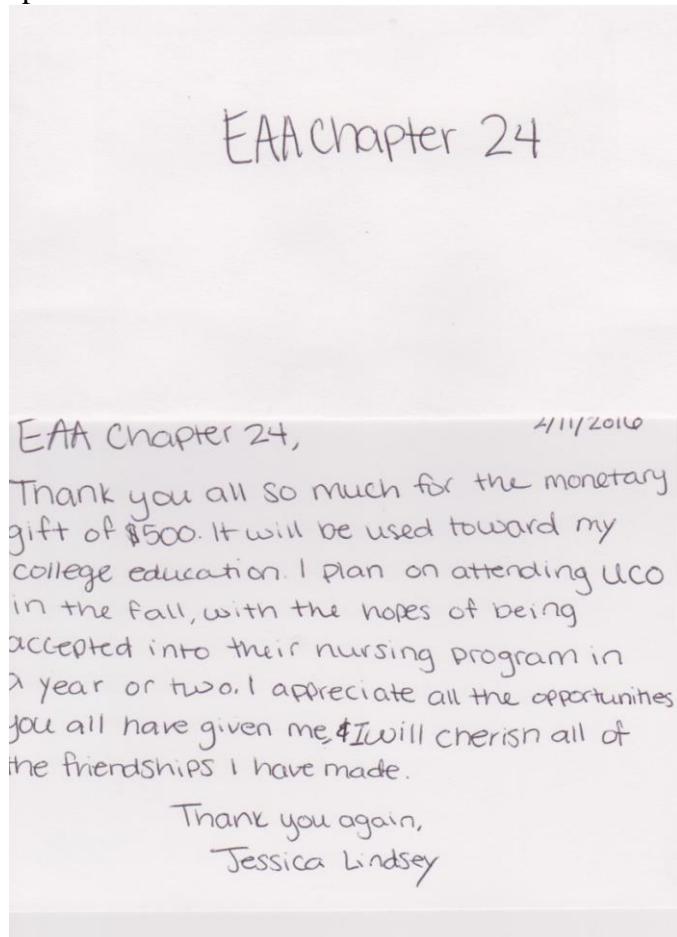 EAA Chapter 24
EAA Chapter 24,
4/11/2016
Thank you all so much for the monetary
gift of $500. It will be used toward my
college education. I plan on attending UCO
in the fall, with the hopes of being
accepted into their nursing program in
a year or two. I appreciate all the opportunities
you all have given me, & I will cherish all of
the friendships I have made.
Thank you again,
Jessica Lindsey